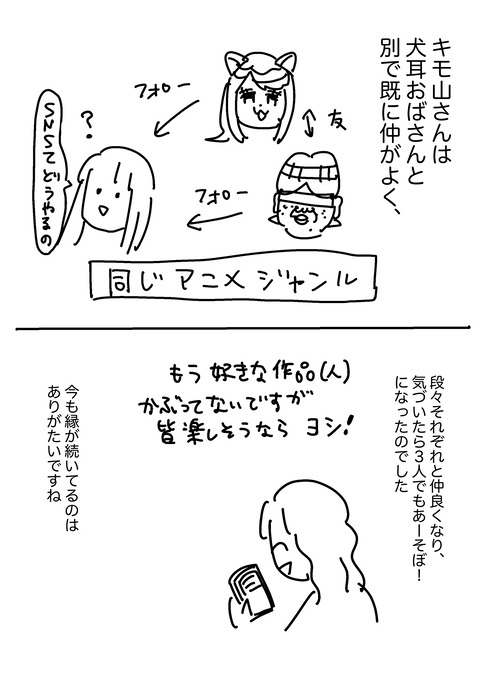 キモ山さんは
犬耳おばさんと
別で既に仲がよく、
友
フォロー
フォロー
?
SNSてどうやるの
同じアニメジャンル
段々それぞれと仲良くなり、
気づいたら3人でもあーそぼ!
になったのでした
もう好きな作品(人)
かぶってないですが
皆楽しそうなら ヨシ!
今も縁が続いてるのは
ありがたいですね